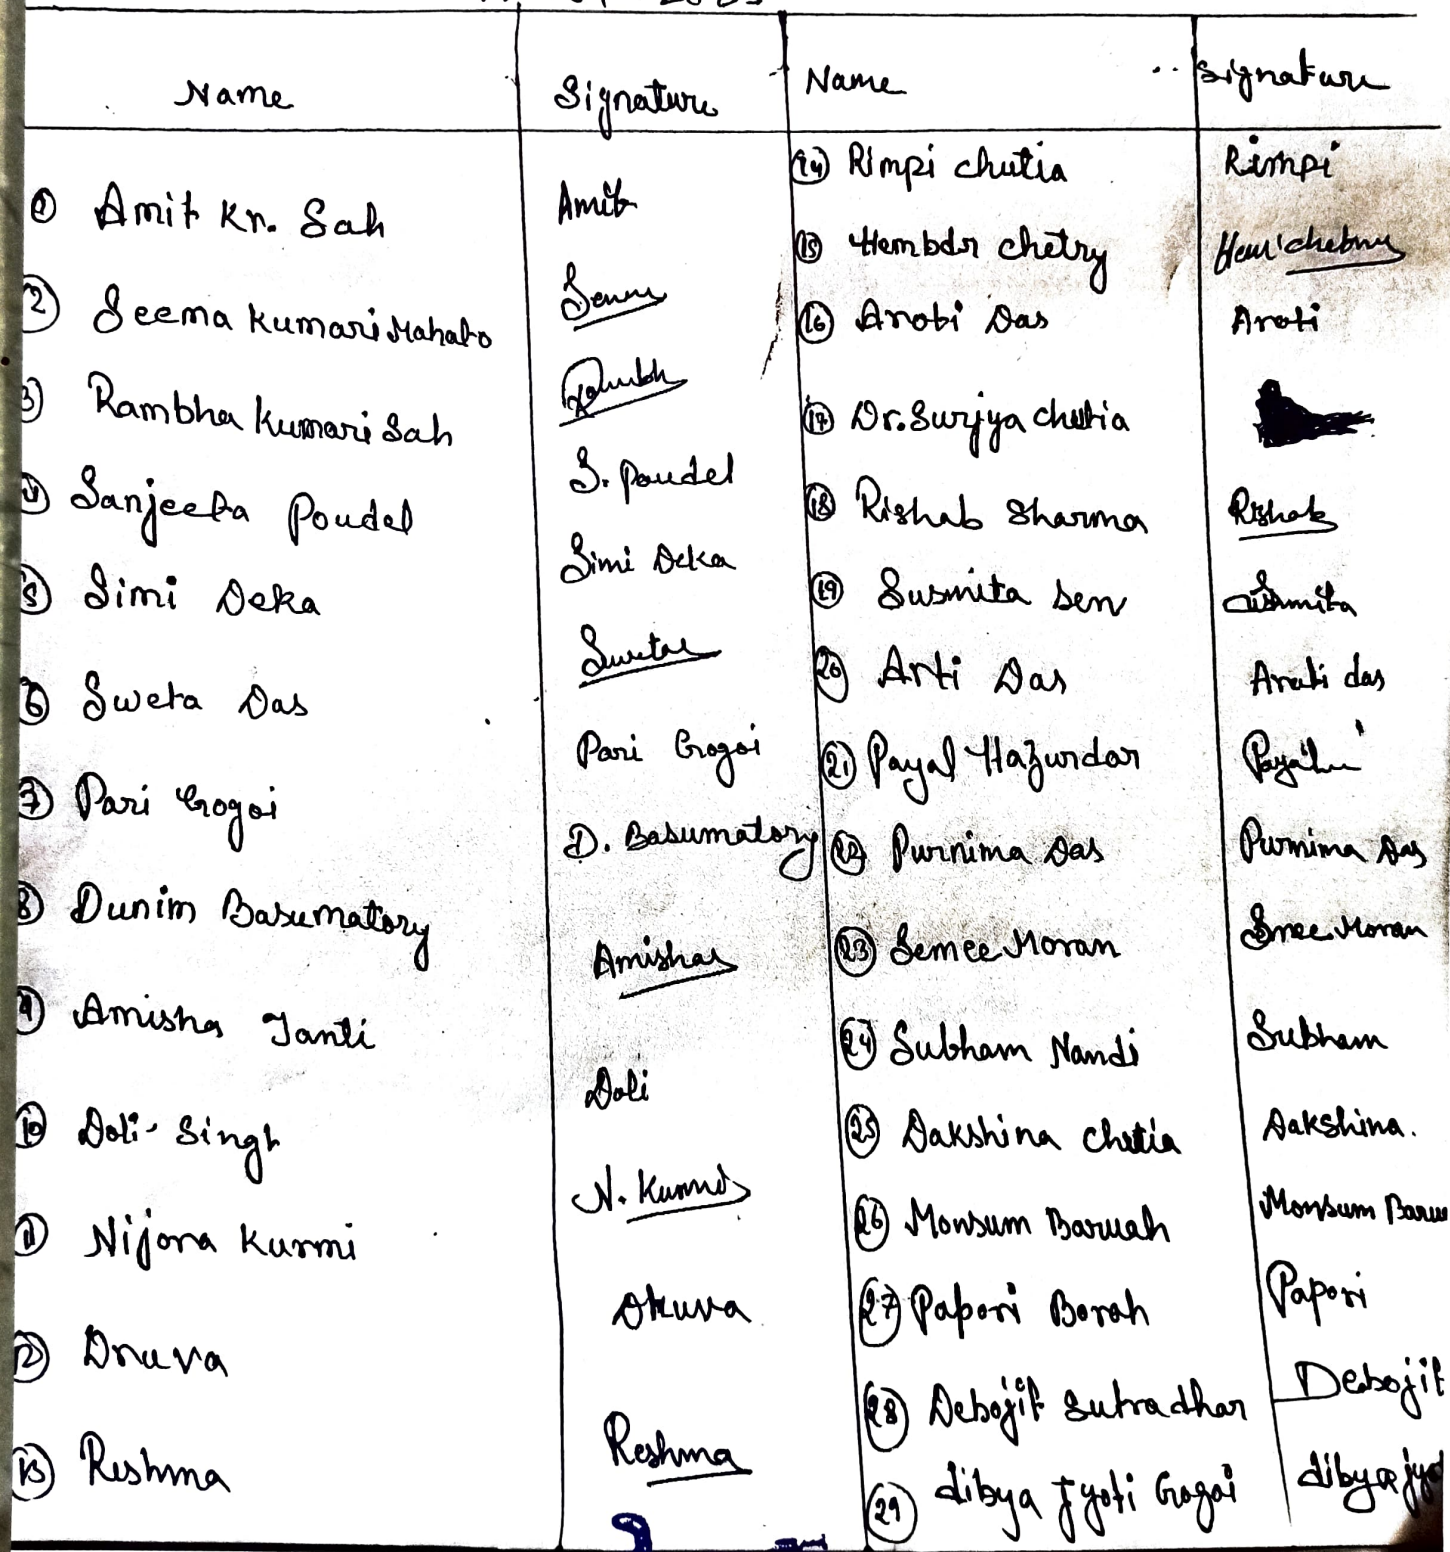 Name Signature Name Signature
① Amit Kr. Sah Amit
② Seema Kumari Mahato
③ Rambha Kumari Sah
④ Sanjeeta Poudel S. Poudel
⑤ Simi Deka Simi Deka
⑥ Sweta Das Sweta
⑦ Pari Gogoi Pari Gogoi
⑧ Dunim Basumatory D. Basumatory
⑨ Amisha Tanti Amisha
⑩ Doli Singh Doli
⑪ Nijora Kurmi N. Kurmi
⑫ Druva Dhuva
⑬ Reshma Reshma
⑭ Rimpi chutia Rimpi
⑮ Hembdr chetry
⑯ Aroti Das Aroti
⑰ Dr. Surjya chutia
⑱ Rishab Sharma Rishab
⑲ Susmita Sen Susmita
⑳ Arti Das Arati das
㉑ Payal Hazundar
㉒ Purnima Das Purnima Das
㉓ Semee Moran Smee Moran
㉔ Subham Nandi Subham
㉕ Dakshina Chetia Dakshina.
㉖ Monsum Baruah Monsum Baru
㉗ Papori Borah Papori
㉘ Debojit Sutradhar Debojit
㉙ dibya Jyoti Gogoi dibya jyo